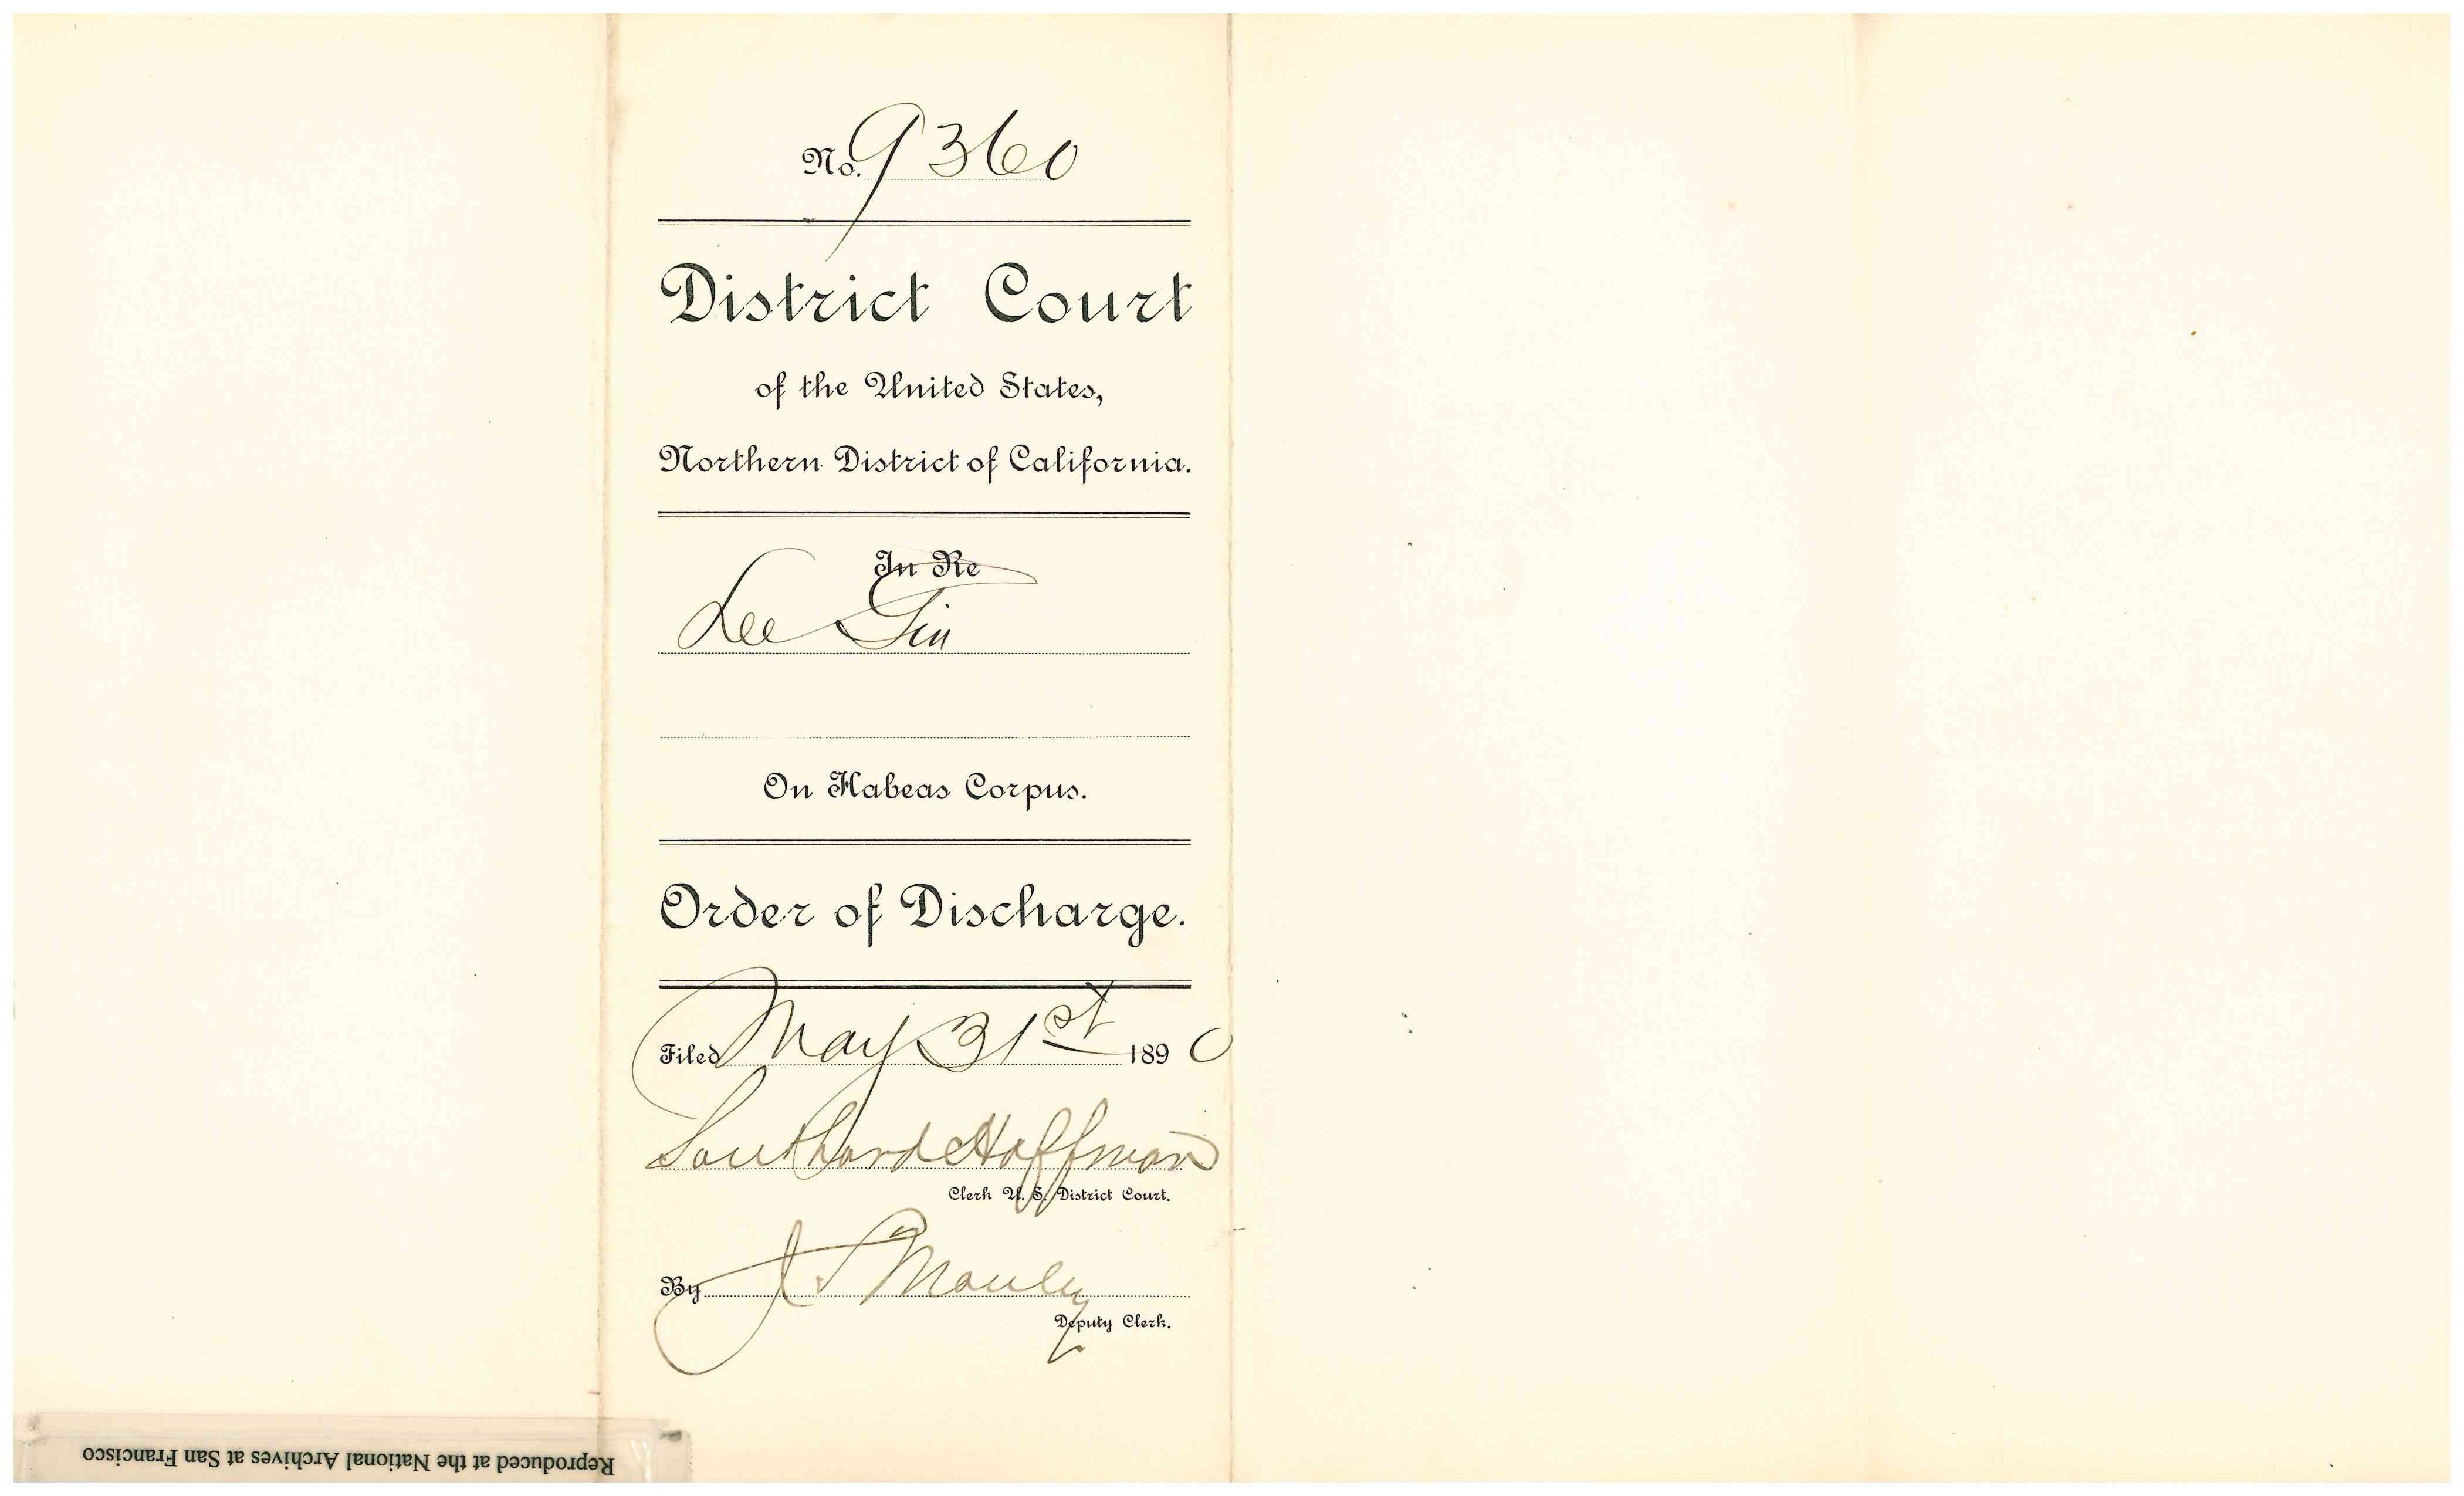 No. 9360
District Court
of the United States,
Northern District of California.
In Re
Lee Sin
On Habeas Corpus.
Order of Discharge.
Filed May 31st 1890
Southard Hoffman
Clerk U. S. District Court.
By J. S. Manley
Deputy Clerk.
Reproduced at the National Archives at San Francisco